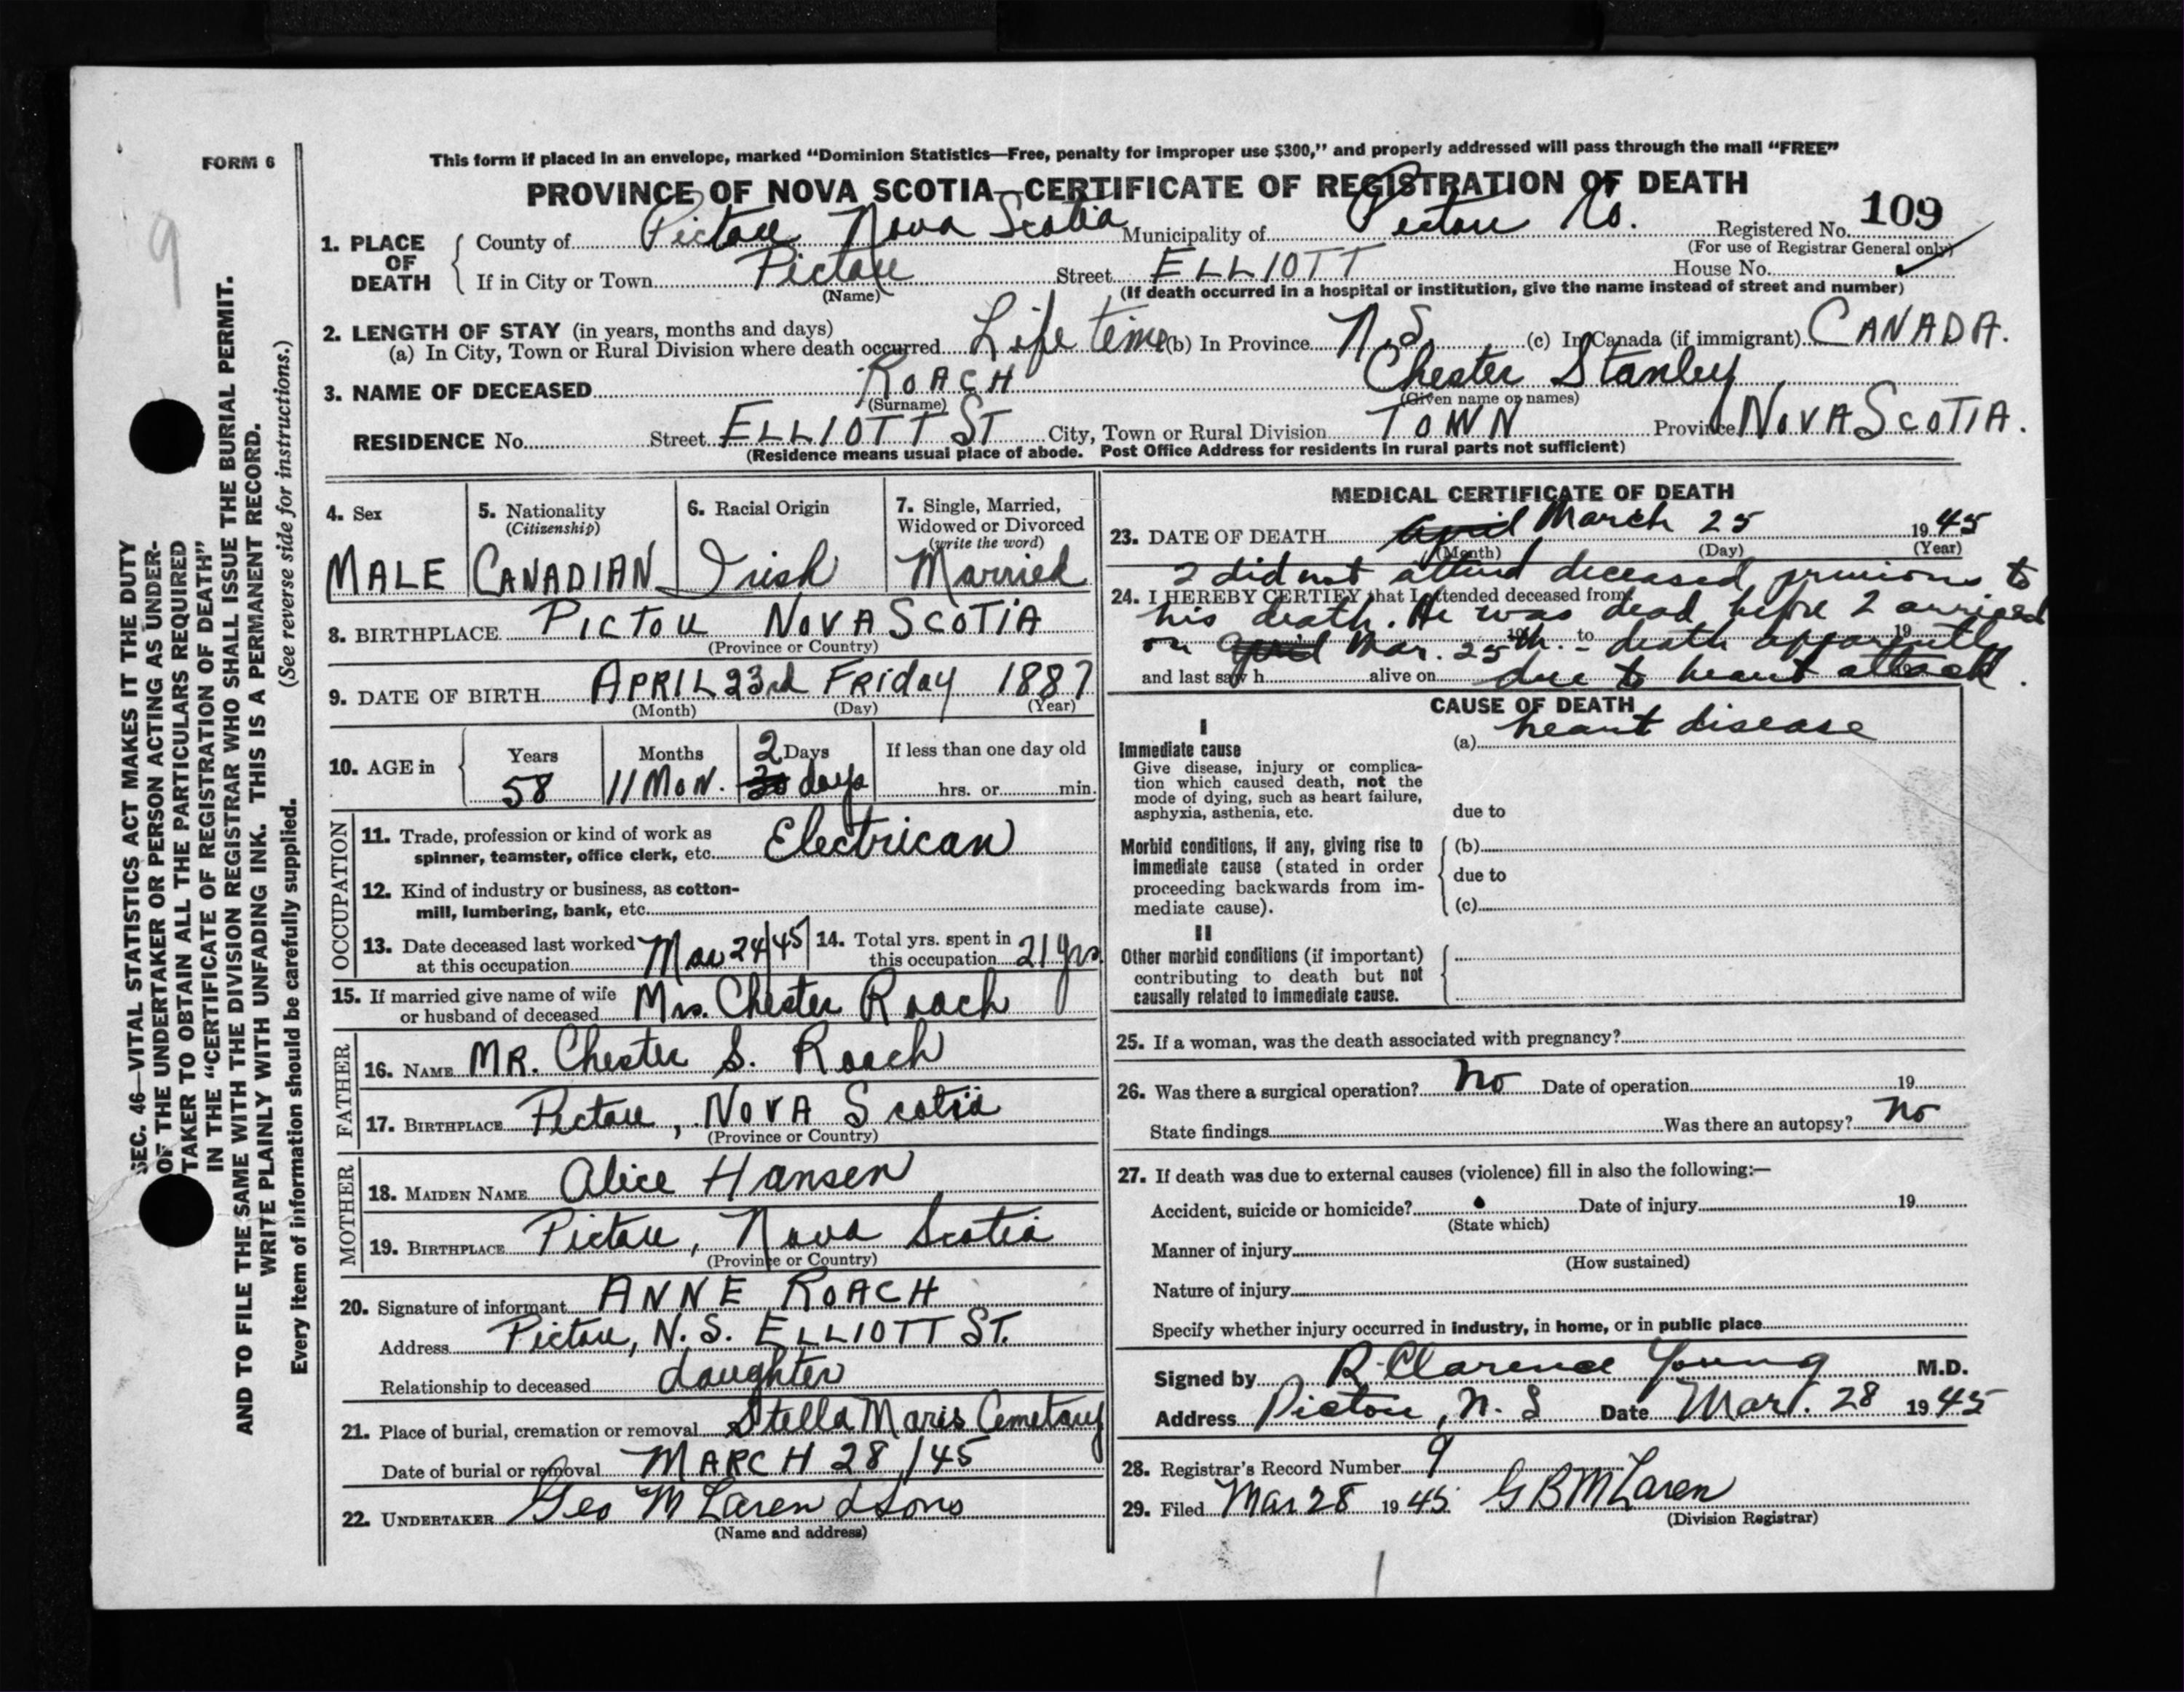 FORM 6
This form if placed in an envelope, marked “Dominion Statistics—Free, penalty for improper use $300,” and properly addressed will pass through the mail “FREE”
PROVINCE OF NOVA SCOTIA—CERTIFICATE OF REGISTRATION OF DEATH
9
SEC. 46—VITAL STATISTICS ACT MAKES IT THE DUTY
OF THE UNDERTAKER OR PERSON ACTING AS UNDER-
TAKER TO OBTAIN ALL THE PARTICULARS REQUIRED
IN THE “CERTIFICATE OF REGISTRATION OF DEATH”
AND TO FILE THE SAME WITH THE DIVISION REGISTRAR WHO SHALL ISSUE THE BURIAL PERMIT.
WRITE PLAINLY WITH UNFADING INK. THIS IS A PERMANENT RECORD.
Every item of information should be carefully supplied. (See reverse side for instructions.)
1. PLACE OF DEATH County of Pictou Nova Scotia Municipality of Pictou Co. Registered No. 109
(For use of Registrar General only)
If in City or Town Pictou Street ELLIOTT House No.
(Name) (If death occurred in a hospital or institution, give the name instead of street and number)
2. LENGTH OF STAY (in years, months and days)
(a) In City, Town or Rural Division where death occurred Life time (b) In Province N.S. (c) In Canada (if immigrant) CANADA.
3. NAME OF DECEASED ROACH Chester Stanley
(Surname) (Given name or names)
RESIDENCE No. Street ELLIOTT ST City, Town or Rural Division TOWN Province NOVA SCOTIA.
(Residence means usual place of abode. Post Office Address for residents in rural parts not sufficient)
4. Sex 5. Nationality (Citizenship) 6. Racial Origin 7. Single, Married, Widowed or Divorced (write the word)
MALE CANADIAN Irish Married
8. BIRTHPLACE PICTOU NOVA SCOTIA
(Province or Country)
9. DATE OF BIRTH APRIL 23rd Friday 1887
(Month) (Day) (Year)
10. AGE in Years Months 2 Days If less than one day old
58 11 Mon. 30 days hrs. or min.
OCCUPATION
11. Trade, profession or kind of work as
spinner, teamster, office clerk, etc. Electrican
12. Kind of industry or business, as cotton-
mill, lumbering, bank, etc.
13. Date deceased last worked at this occupation Mar 24/45 14. Total yrs. spent in this occupation 21 yrs.
15. If married give name of wife
or husband of deceased Mrs. Chester Roach
FATHER
16. NAME MR. Chester S. Roach
17. BIRTHPLACE Pictou, NOVA Scotia
(Province or Country)
MOTHER
18. MAIDEN NAME Alice Hansen
19. BIRTHPLACE Pictou, Nova Scotia
(Province or Country)
20. Signature of informant ANNE ROACH
Address Pictou, N.S. ELLIOTT ST.
Relationship to deceased daughter
21. Place of burial, cremation or removal Stella Maris Cemetary
Date of burial or removal MARCH 28/45
22. UNDERTAKER Geo McLaren & Sons
(Name and address)
MEDICAL CERTIFICATE OF DEATH
23. DATE OF DEATH April March 25 1945
(Month) (Day) (Year)
I did not attend deceased previous to
24. I HEREBY CERTIFY that I attended deceased from
his death. He was dead before I arrived
19 to 19
on April Mar. 25th. - death apparently
and last saw h alive on due to heart attack.
CAUSE OF DEATH
I
Immediate cause (a) heart disease
Give disease, injury or complica-
tion which caused death, not the
mode of dying, such as heart failure,
asphyxia, asthenia, etc. due to
Morbid conditions, if any, giving rise to (b)
immediate cause (stated in order due to
proceeding backwards from im-
mediate cause). (c)
II
Other morbid conditions (if important)
contributing to death but not
causally related to immediate cause.
25. If a woman, was the death associated with pregnancy?
26. Was there a surgical operation? no Date of operation 19
State findings Was there an autopsy? no
27. If death was due to external causes (violence) fill in also the following:—
Accident, suicide or homicide? Date of injury 19
(State which)
Manner of injury
(How sustained)
Nature of injury
Specify whether injury occurred in industry, in home, or in public place
Signed by R. Clarence Young M.D.
Address Pictou, N.S Date Mar. 28 1945
28. Registrar's Record Number 9
29. Filed Mar 28 1945 G B McLaren
(Division Registrar)